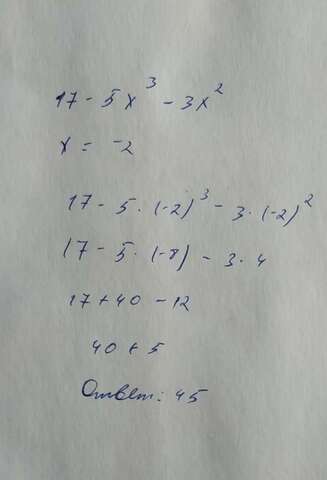 17 - 5x³ - 3x²
x = -2
17 - 5 · (-2)³ - 3 · (-2)²
17 - 5 · (-8) - 3 · 4
17 + 40 - 12
40 + 5
Ответ: 45